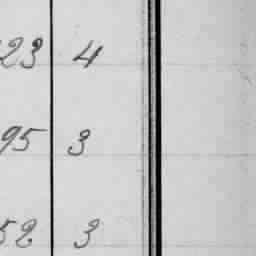 23 4
95 3
52 3